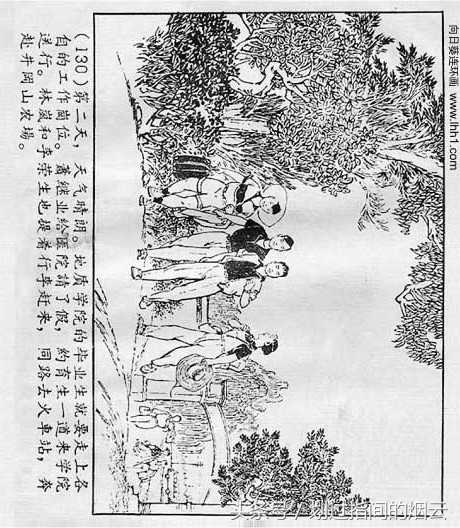 向日葵连环画 www.lhh1.com
(130)第二天，天气晴朗。地质学院的毕业生就要走上各
自的工作岗位。蕭继业给医院請了假，約育生一道来学院
送行。林嵐和李荣生也提着行李赶来，同路去火車站，奔
赴井岡山农場。
头条号 / 划过指间的烟云